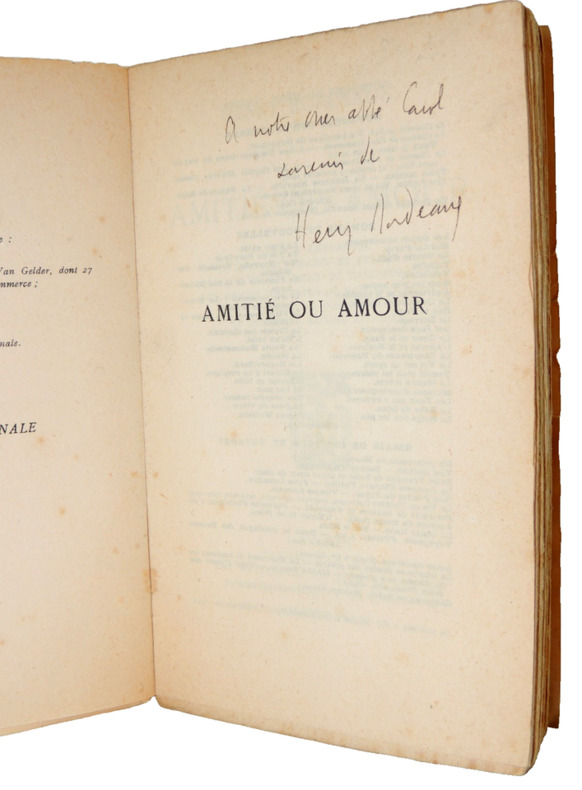 e :
Van Gelder, dont 27
mmerce ;
nale.
NALE
A notre cher abbé Carol
souvenir de
Henry Bordeaux
AMITIÉ OU AMOUR